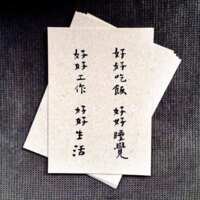 好好吃飯
好好睡覺
好好工作
好好生活